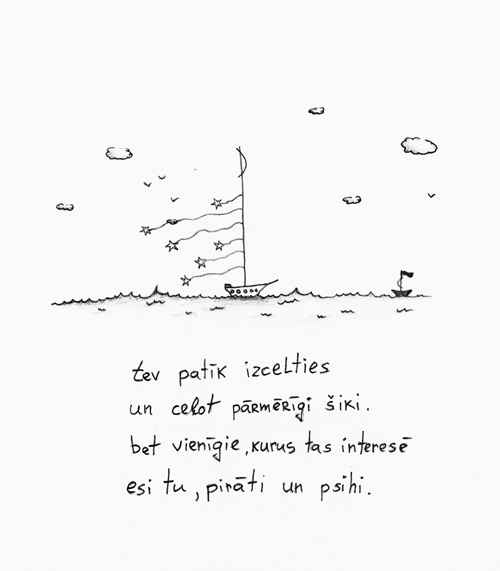 tev patīk izcelties
un ceļot pārmērīgi šiki.
bet vienīgie, kurus tas interesē
esi tu, pirāti un psihi.